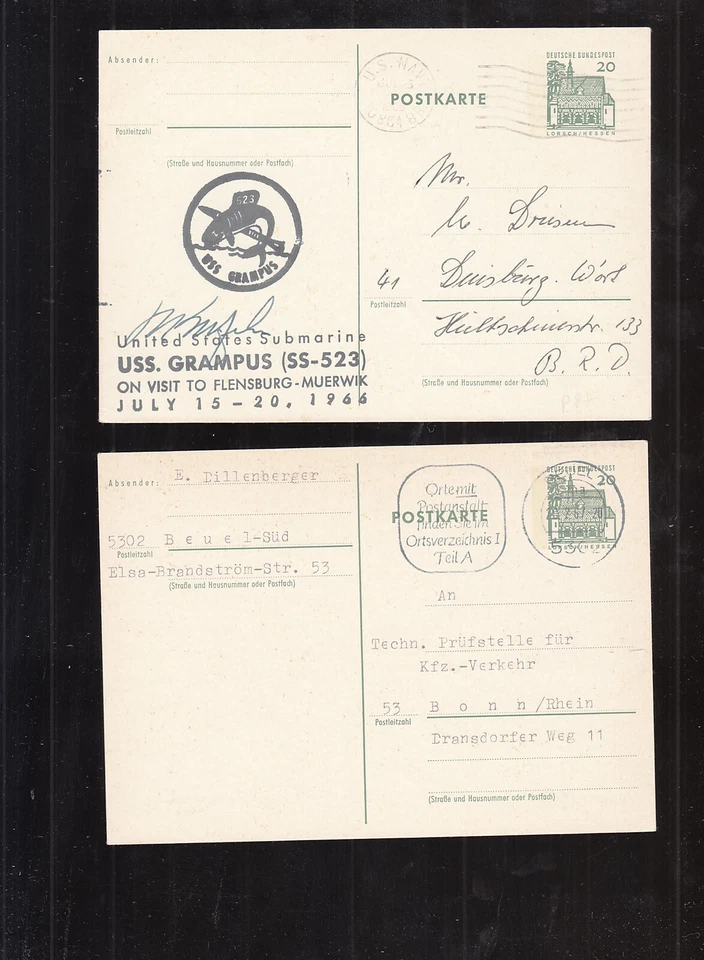 Absender:
Postleitzahl
(Straße und Hausnummer oder Postfach)
523
USS GRAMPUS
United States Submarine
USS. GRAMPUS (SS-523)
ON VISIT TO FLENSBURG-MUERWIK
JULY 15-20, 1966
U.S. NAVY
POSTKARTE
DEUTSCHE BUNDESPOST
20
LORSCH/HESSEN
Mr.
Driesen
41 Duisburg.
Postleitzahl
133
B. R. D.
(Straße und Hausnummer oder Postfach)
Absender: E. Dillenberger
5302 B e u e l-Süd
Postleitzahl
Elsa-Brandström-Str. 53
(Straße und Hausnummer oder Postfach)
Orte mit
Postanstalt
finden Sie im
Ortsverzeichnis I
Teil A
POSTKARTE
DEUTSCHE BUNDESPOST
20
LORSCH/HESSEN
An
Techn. Prüfstelle für
Kfz.-Verkehr
53 B o n n /Rhein
Postleitzahl
Dransdorfer Weg 11
(Straße und Hausnummer oder Postfach)